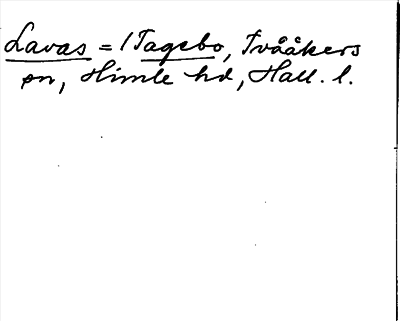 Lavas = /Tagebo, Tvååkers
sn, Himle hd, Hall. l.